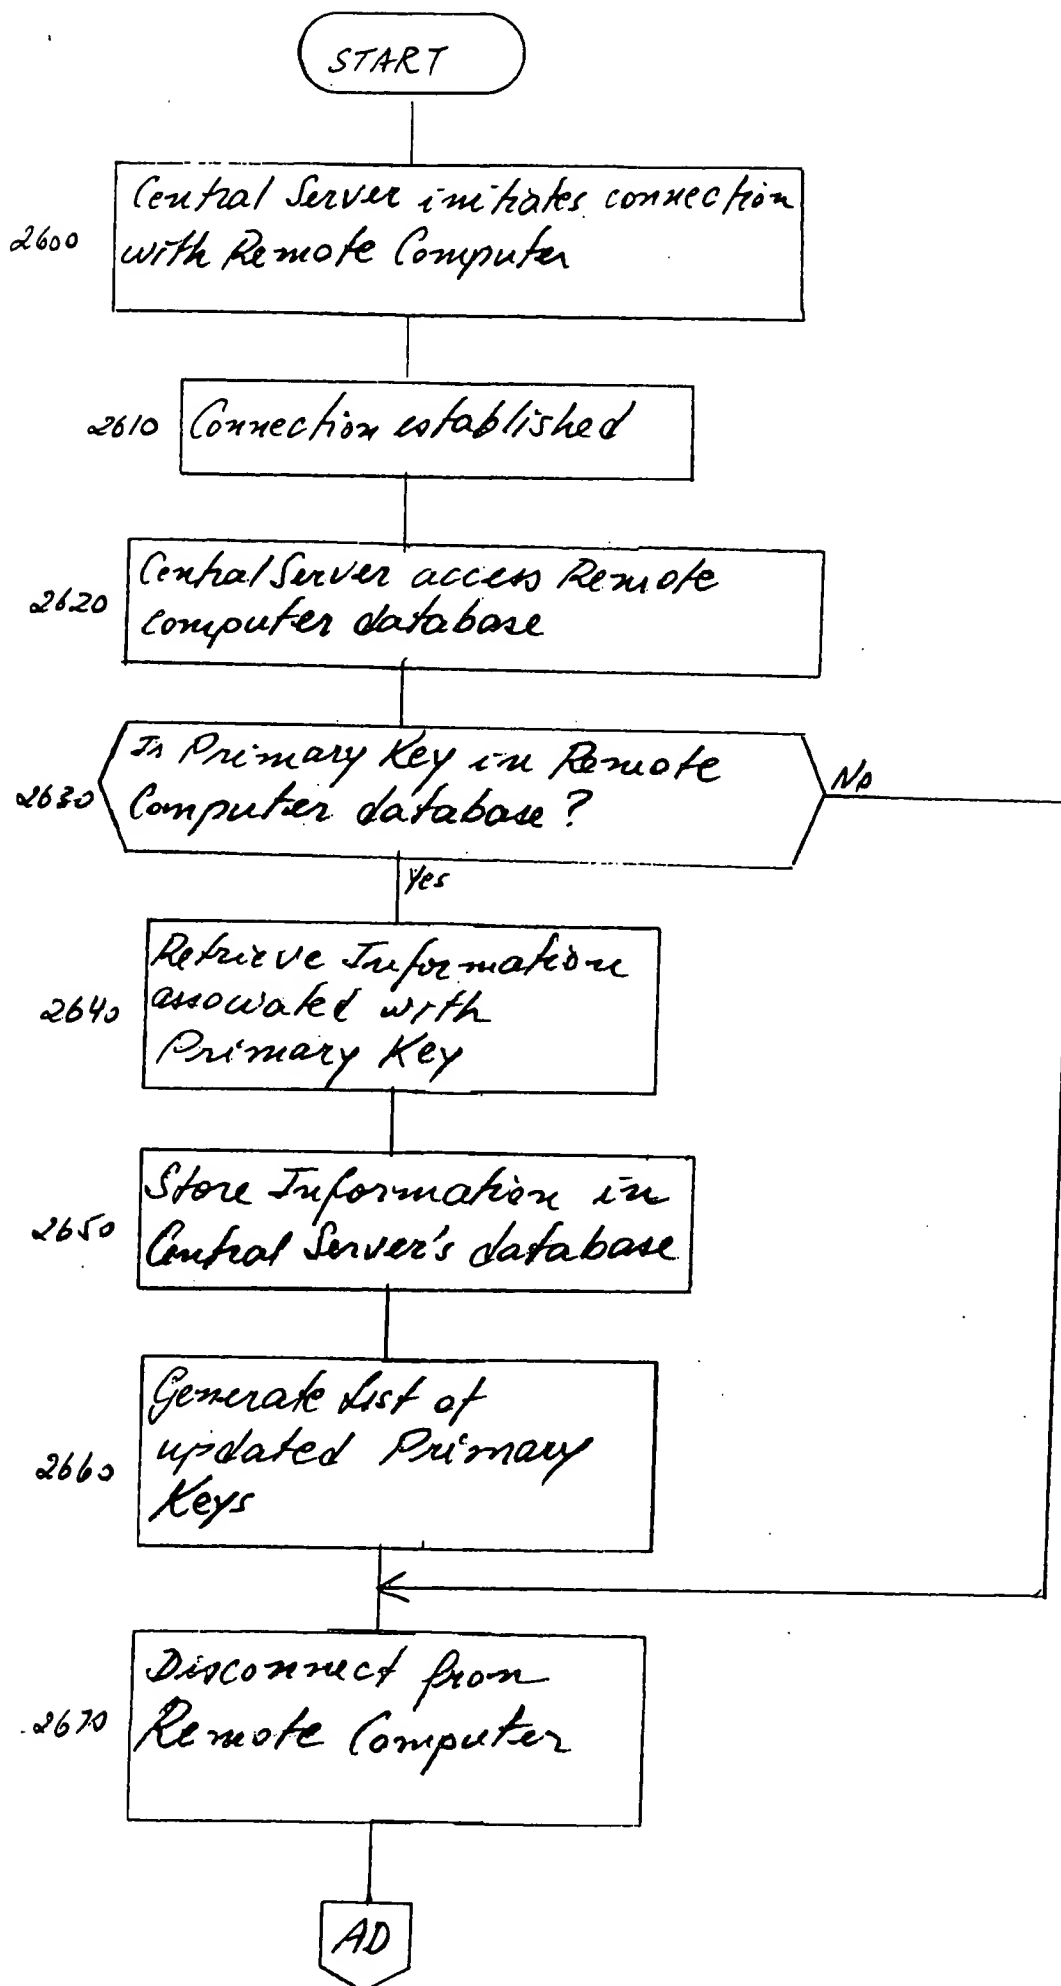 START
Central Server initiates connection
2600
with Remote Computer
2610 Connection established
Central Server access Remote
2620
computer database
Is Primary Key in Remote
No
2630
Computer database?
Yes
Retrieve Information
2640
associated with
Primary Key
Store Information in
2650
Central Server's database
Generate List of
updated Primary
2660
Keys
Disconnect from
2670
Remote Computer
AD